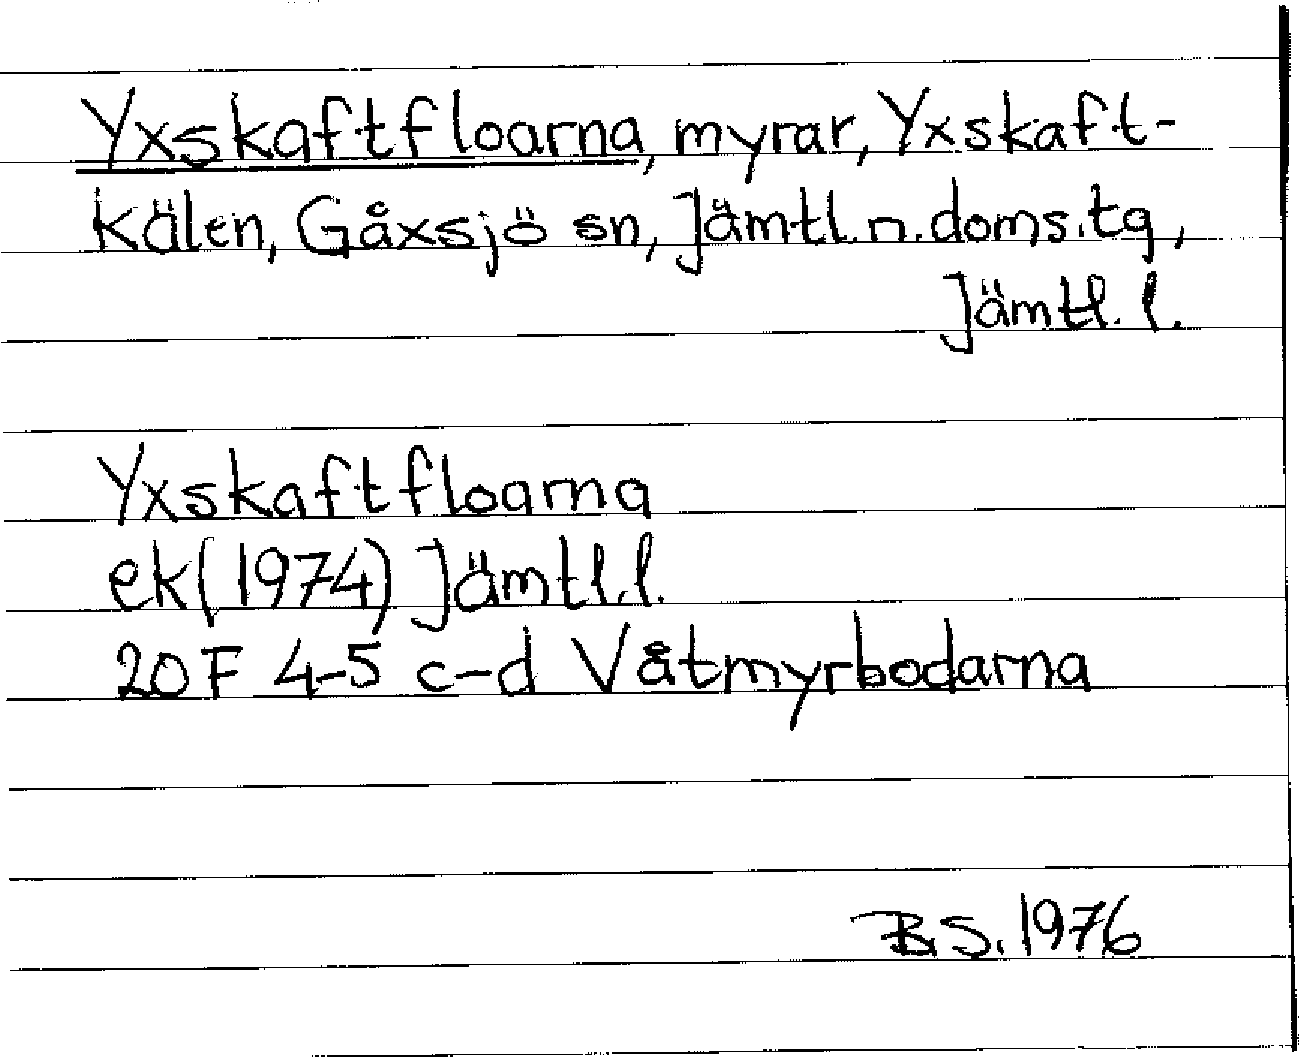 Yxskaftfloarna, myrar, Yxskaft-
kälen, Gåxsjö sn, Jämtl.n.doms.tg,
Jämtl. l.
Yxskaftfloarna
ek(1974) Jämtl.l.
20F 4-5 c-d Våtmyrbodarna
B.S. 1976